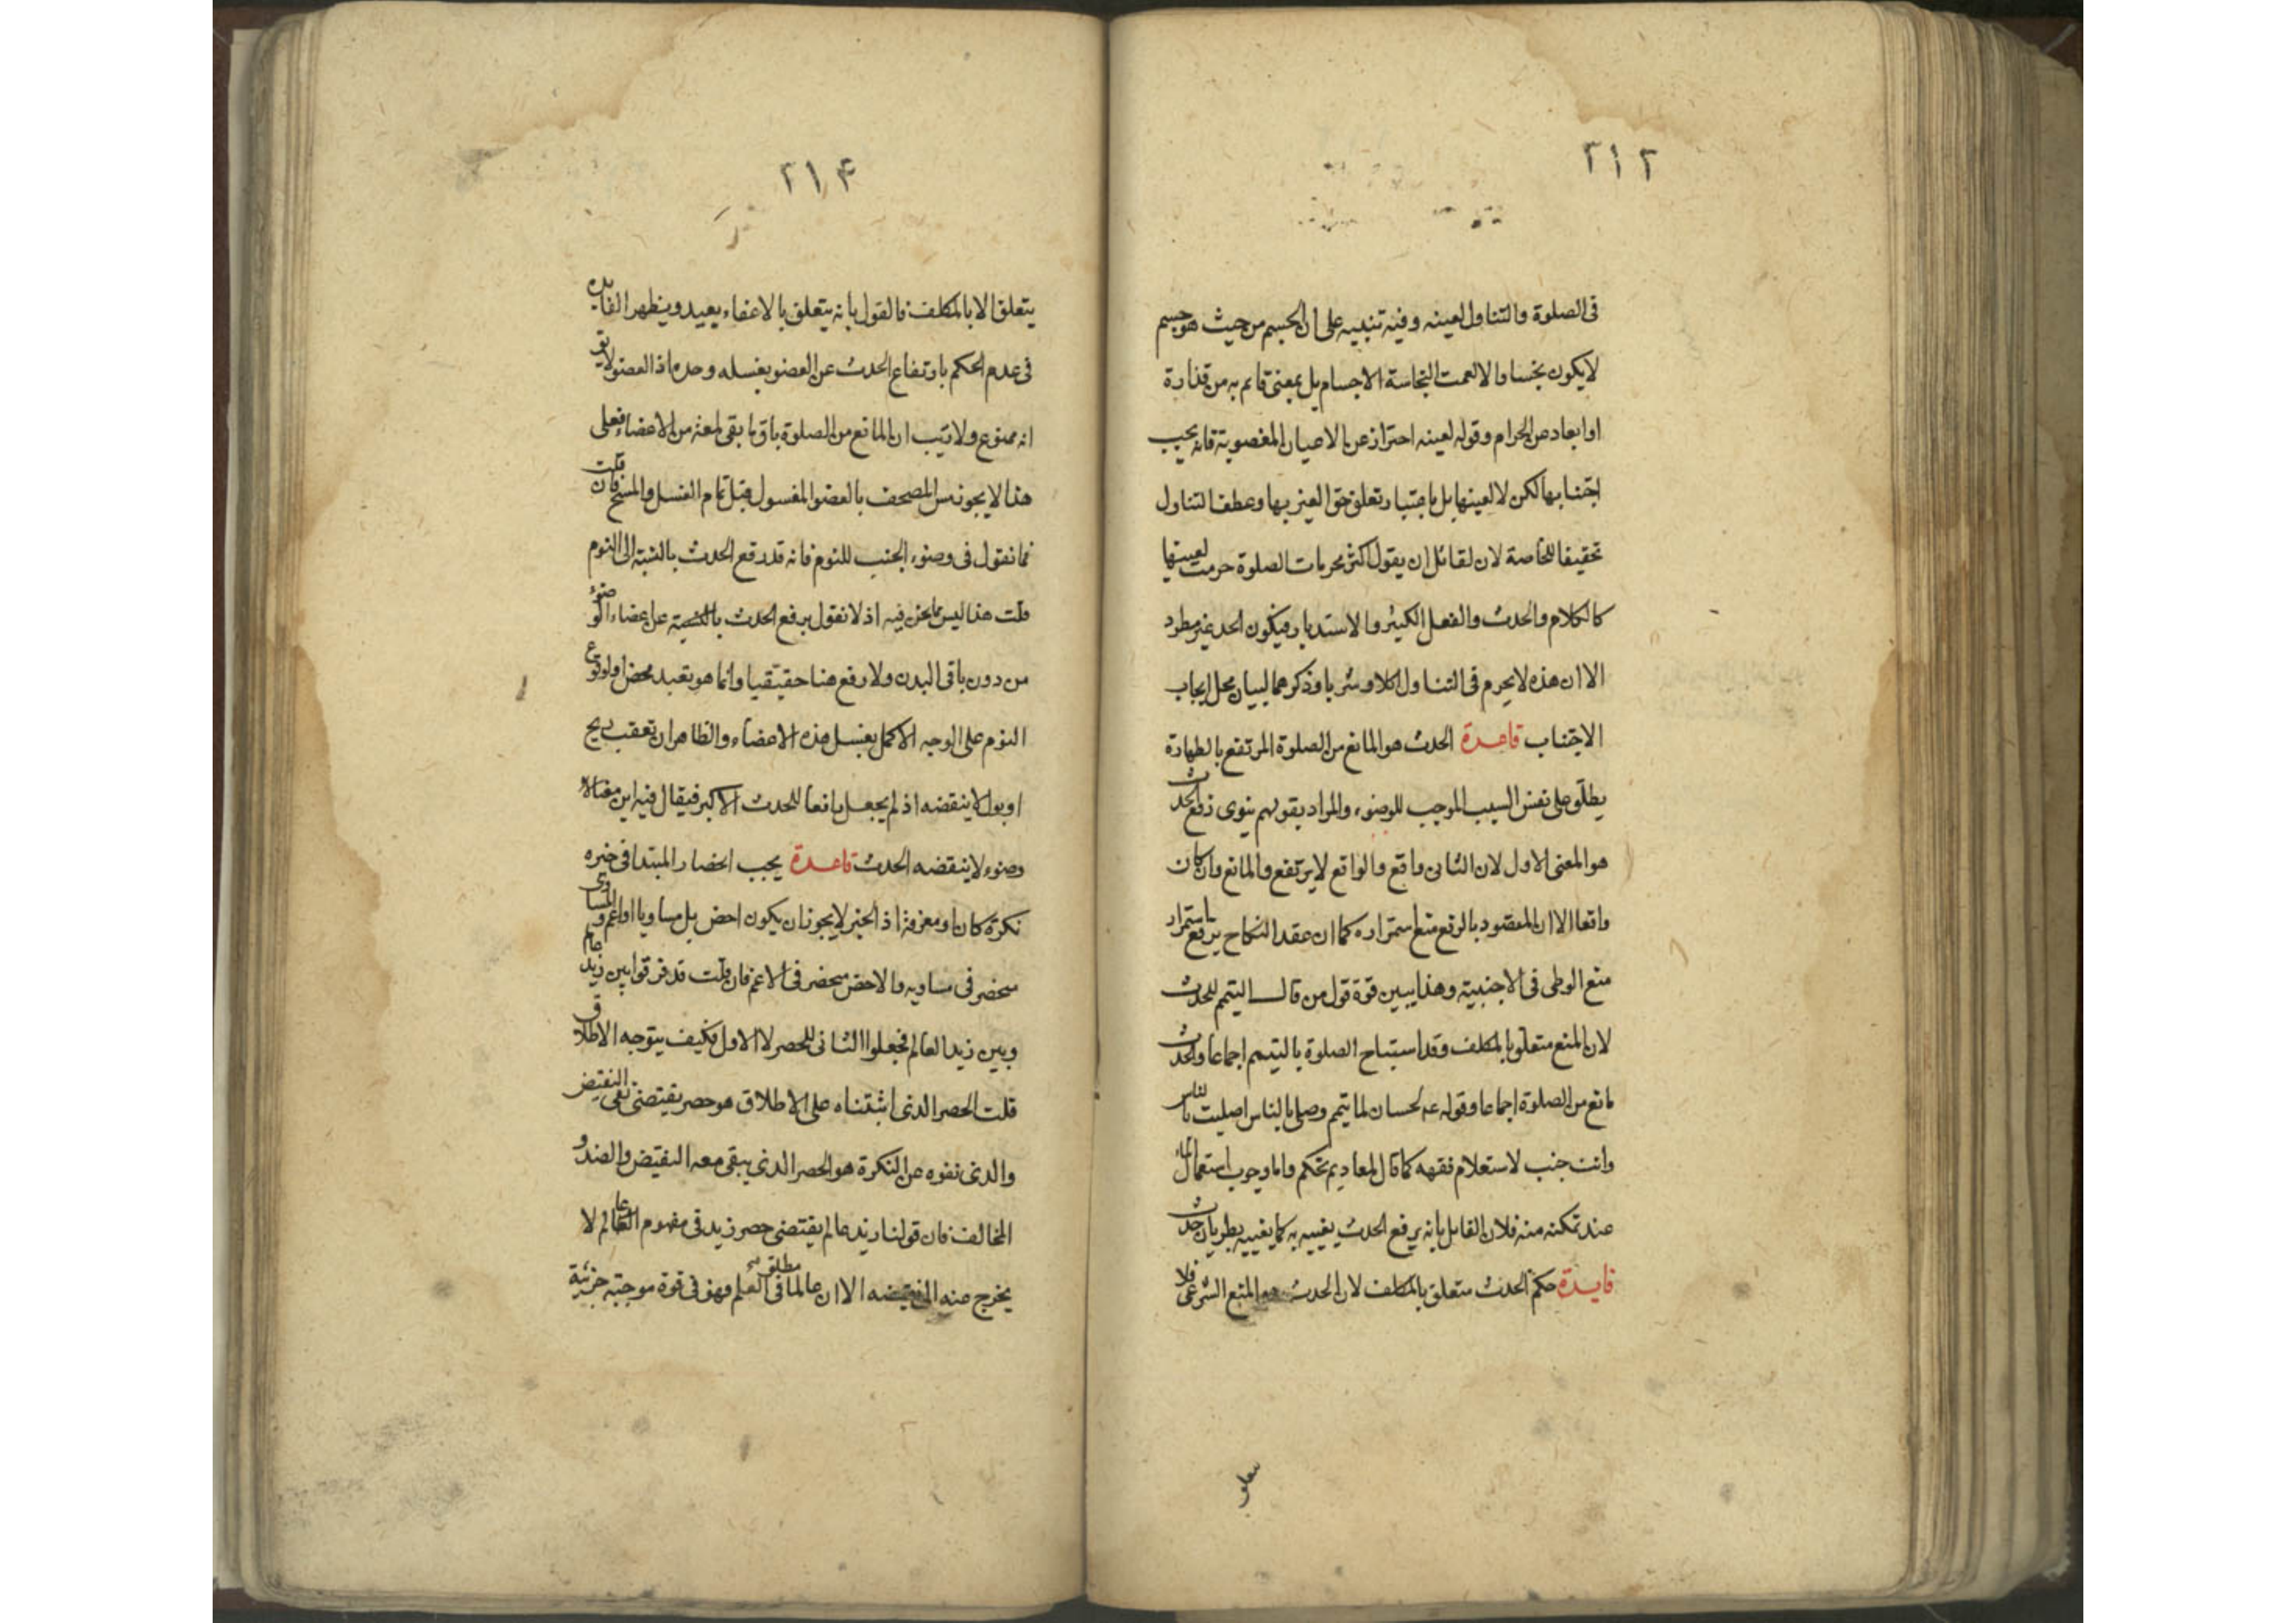 ٢١٢
فى الصلوة والتناول لعينه وفيه تنبيه على ان الجسم من حيث هو جسم
لا يكون نجسا والا لعمت النجاسة الاجسام بل بمعنى قائم به من قذارة
او ابعاد عن الحرام وقوله لعينه احتراز عن الاعيان المغصوبة فانه يجب
اجتنابها لكن لا لعينها بل باعتبار تعلق حق الغير بها وعطف التناول
تحقيقا للخاصة لان لقائل ان يقول اكثر محرمات الصلوة حرمت لعينها
كالكلام والحدث والفعل الكثير والاستدبار فيكون الحد غير مطرد
الا ان هذه لا يحرم فى التناول اكلا وشربا وذكرهما لبيان محل ايجاب
الاجتناب قاعدة الحدث هو المانع من الصلوة المرتفع بالطهارة
يطلق على نفس السبب الموجب للوضوء والمراد بقولهم ينوى رفع الحدث
هو المعنى الاول لان الثانى واقع والواقع لا يرتفع والمانع وان كان
واقعا الا ان المقصود بالرفع منع استمراره كما ان عقد النكاح يرفع استمرار
منع الوطى فى الاجنبية وهذا يبين قوة قول من قال التيمم للحدث
لان المنع متعلق بالمكلف وقد استباح الصلوة بالتيمم اجماعا والحدث
مانع من الصلوة اجماعا وقوله عم لحسان لما تيمم وصلى بالناس اصليت بالناس
وانت جنب لاستعلام فقهه كما قال لمعاد بم تحكم واما وجوب استعمال الماء
عند تمكنه منه فلان القائل بانه يرفع الحدث يغييه به كما يغييه بطريان حدث
فايدة حكم الحدث متعلق بالمكلف لان الحدث هو المنع الشرعى فلا
يتعلق
٢١٤
يتعلق الا بالمكلف فالقول بانه يتعلق بالاعضاء بعيد ويظهر الفايده
فى عدم الحكم بارتفاع الحدث عن العضو بغسله وحده اذ العضو لا يق
انه ممنوع ولا ريب ان المانع من الصلوة باق ما بقى لمعة من الاعضاء فعلى
هذا لا يجوز مس المصحف بالعضو المغسول قبل تمام الغسل والمسح فان قلت
فما نقول فى وضوء الجنب للنوم فانه قد رفع الحدث بالنسبة الى النوم
قلت هذا ليس مما نحن فيه اذ لا نقول برفع الحدث بالنسبة عن اعضاء الوضوء
من دون باقى البدن ولا رفع هنا حقيقيا وانما هو تعبد محض او لوقوع
النوم على الوجه الاكمل بغسل هذه الاعضاء والظاهر ان تعقب ريح
او بول لا ينقضه اذ لم يجعل رافعا للحدث الاكبر فيقال فيه اين مغتالا
وضوء لا ينقضه الحدث قاعدة يجب انحصار المبتدا فى خبره
نكرة كان او معرفة اذ الخبر لا يجوز ان يكون اخص بل مساويا او اعم والمساوى
منحصر فى مساويه والاخص منحصر فى الاعم فان قلت قد فرقوا بين زيد عالم
وبين زيد العالم فجعلوا الثانى للحصر لا الاول فكيف يتوجه الاطلاق
قلت الحصر الذى اثبتناه على الاطلاق هو حصر يقتضى نفى النقيض
والذى نفوه عن النكرة هو الحصر الذى يبقى معه النقيض والضد و
المخالف فان قولنا زيد عالم يقتضى حصر زيد فى مفهوم العالم لا
يخرج عنه الى نقيضه الا ان عالما فى مطلق العلم فهو فى قوة موجبة جزئية